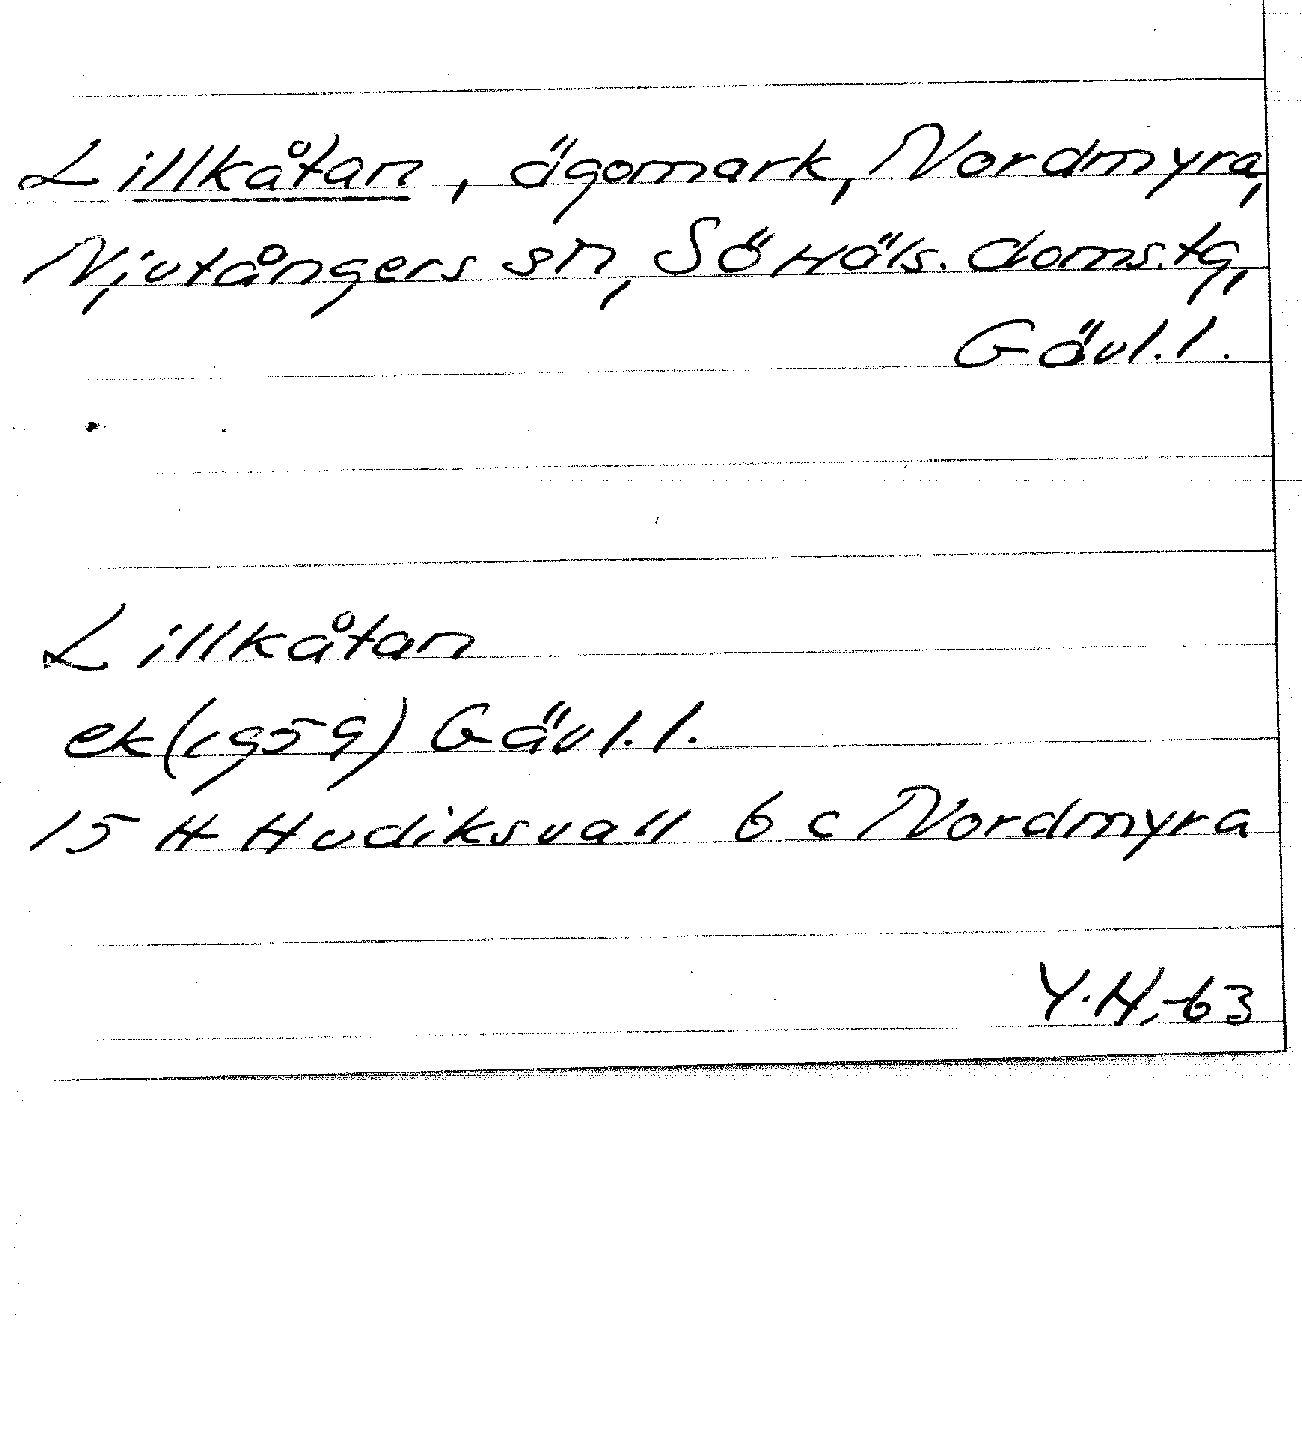 Lillkåtan, ägomark, Nordmyra,
Njutångers sn, Sö Häls. doms.tg,
Gävl.l.
Lillkåtan
ek(1959) Gävl.l.
15 H Hudiksvall 6 c Nordmyra
Y.H,-63